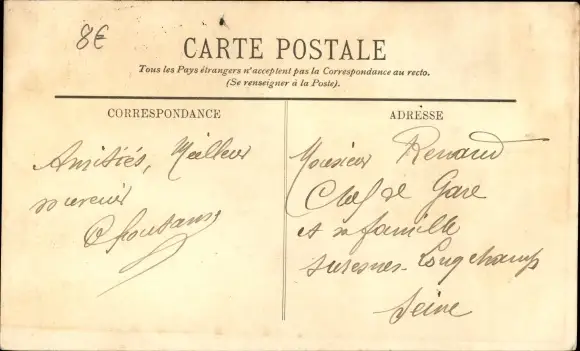 8€
CARTE POSTALE
Tous les Pays étrangers n'acceptent pas la Correspondance au recto.
(Se renseigner à la Poste).
CORRESPONDANCE
ADRESSE
Amitiés, Meilleur
souvenir
Monsieur Renaud
Chef de Gare
et sa famille
Suresnes-Longchamp
Seine